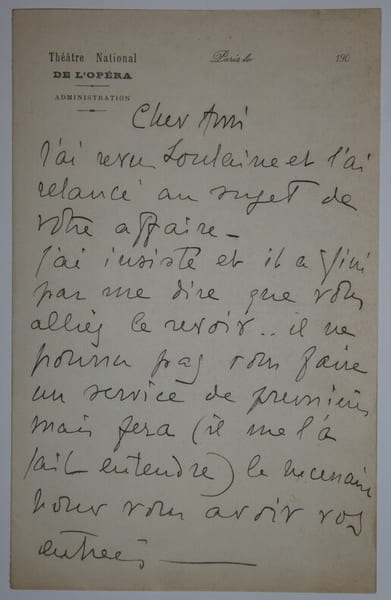 Théâtre National
DE L'OPÉRA
ADMINISTRATION
Paris le 190
Cher Ami
J'ai revu Soulaine et l'ai
relancé au sujet de
votre affaire –
J'ai insisté et il a fini
par me dire que vous
alliez le revoir .. il ne
pourra pas vous faire
un service de premières
mais fera (il me l'a
fait entendre) le necessaire
pour vous avoir vos
entrées —